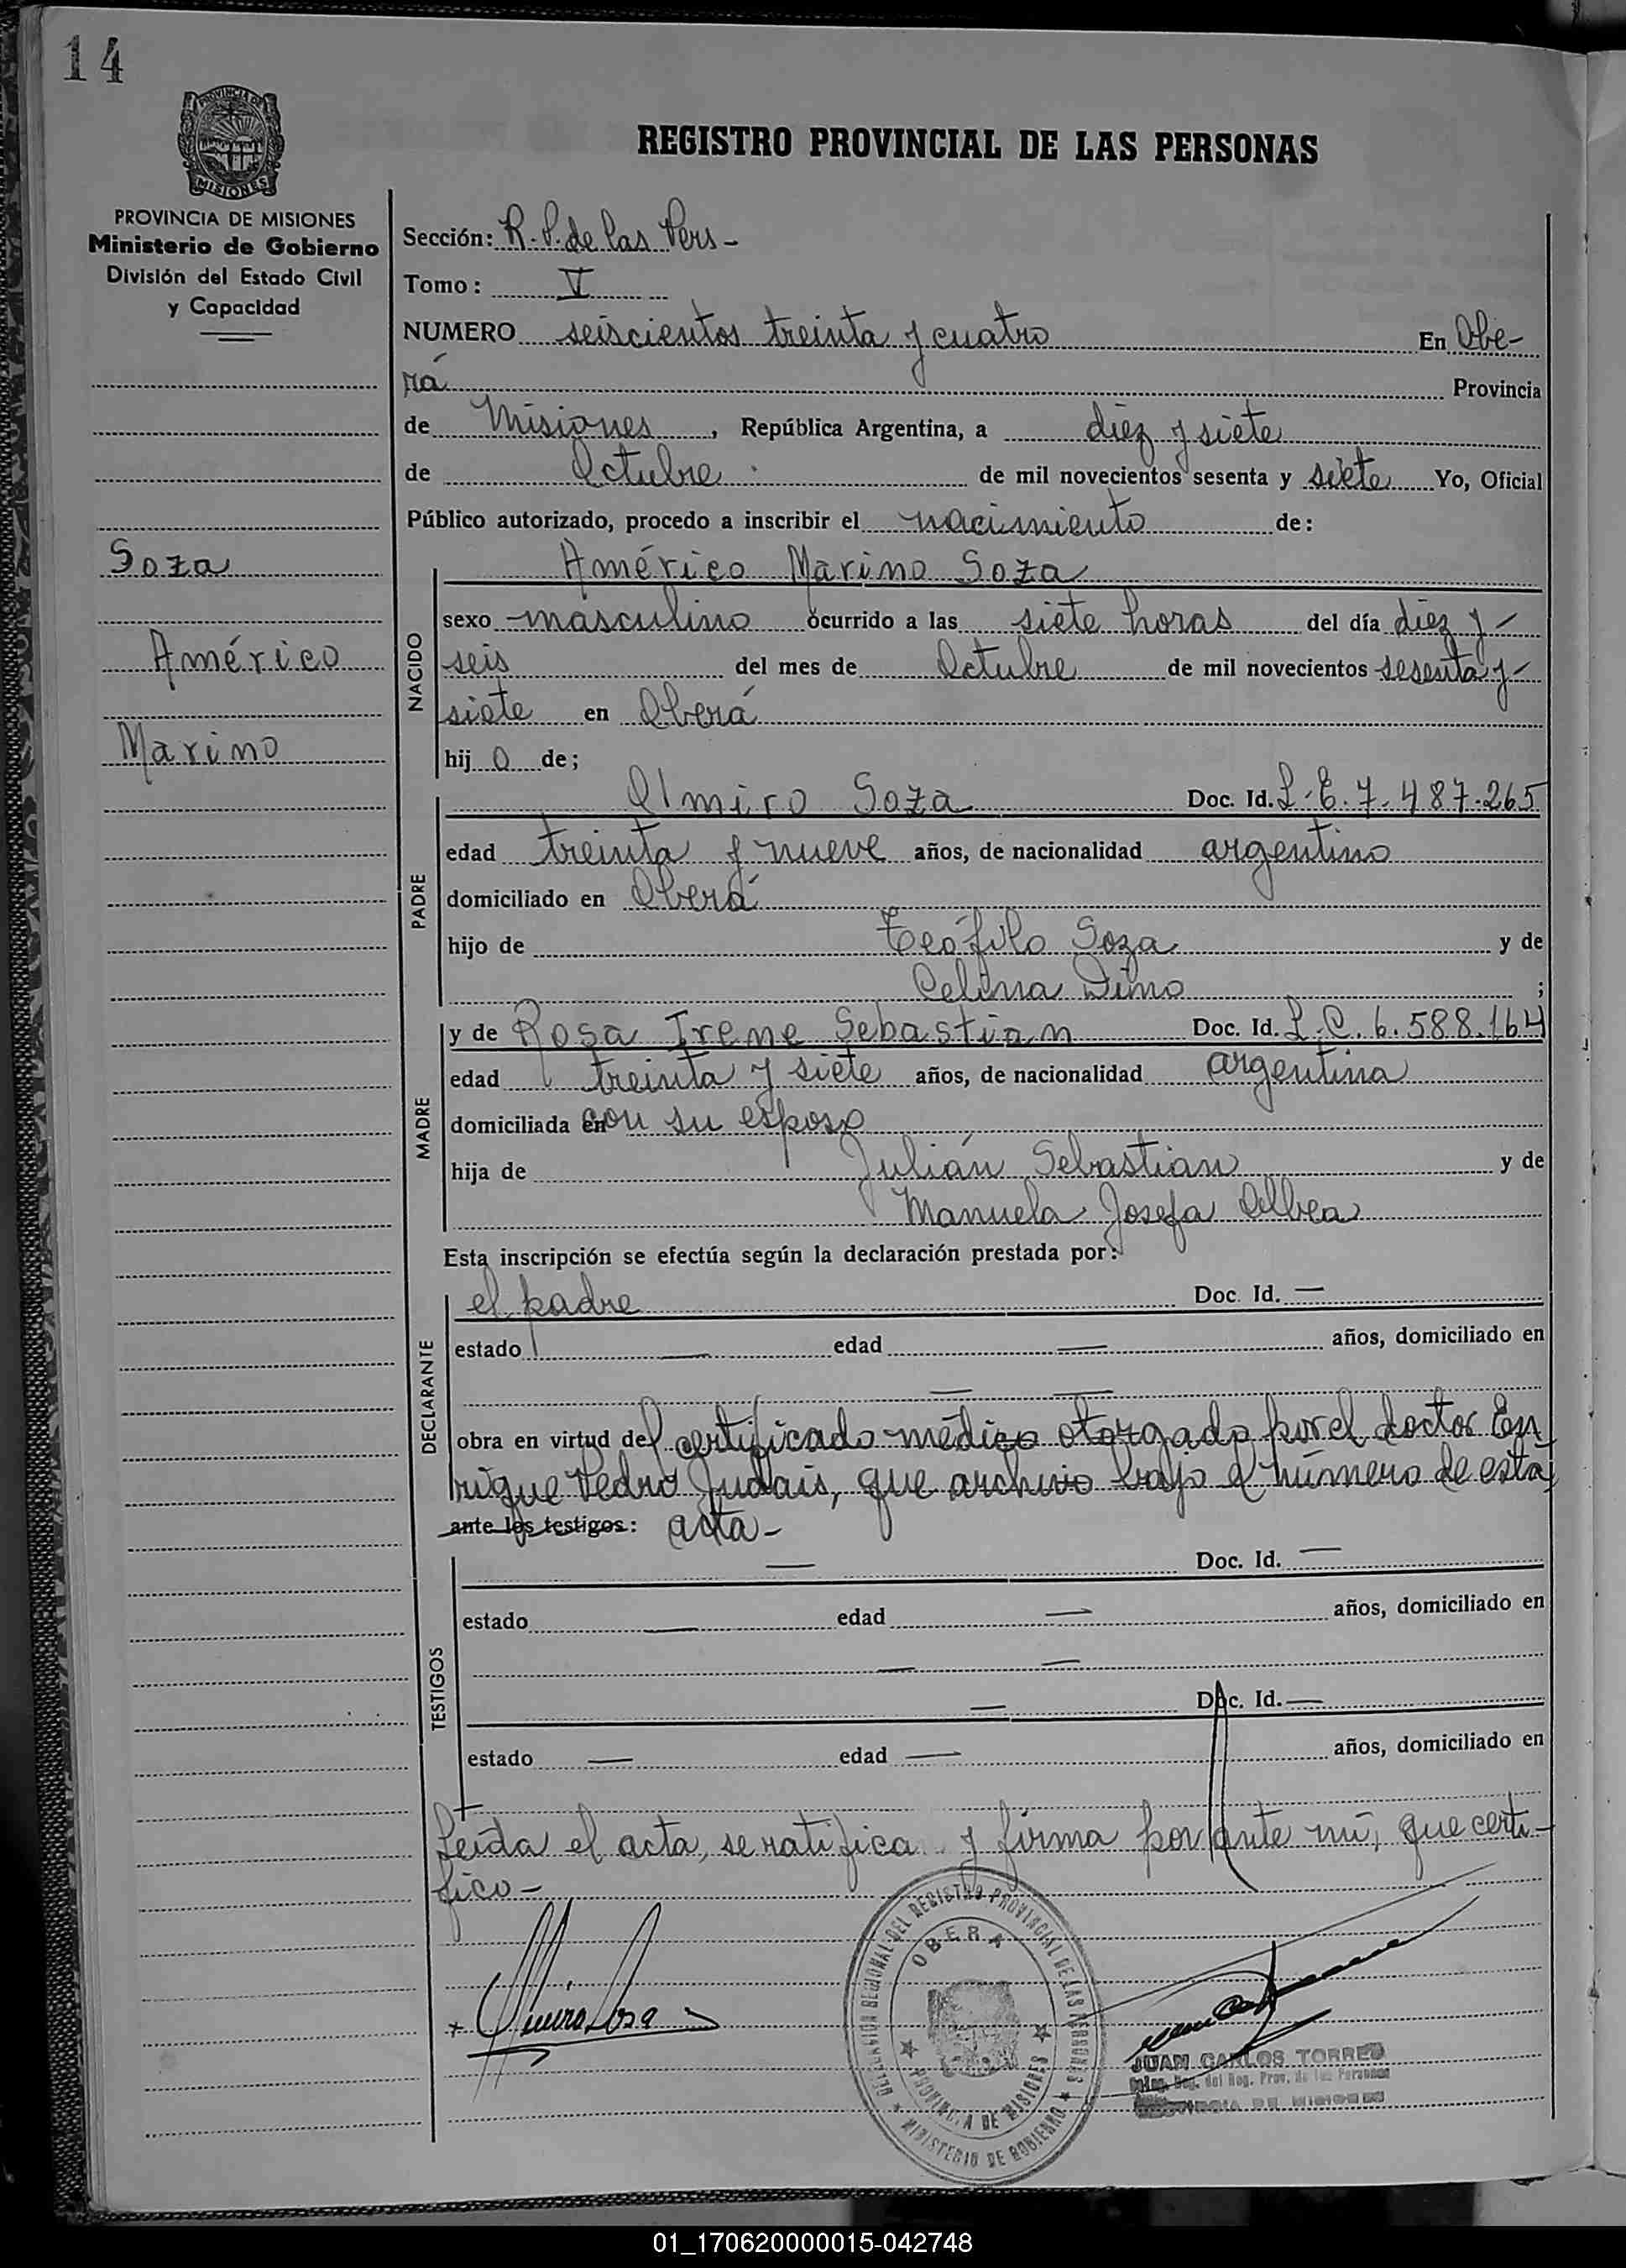 14
PROVINCIA DE
MISIONES
REGISTRO PROVINCIAL DE LAS PERSONAS
PROVINCIA DE MISIONES
Ministerio de Gobierno
División del Estado Civil
y Capacidad
Sección: R. P. de las Pers -
Tomo: V
NUMERO seiscientos treinta y cuatro En Obe-
rá Provincia
de Misiones, República Argentina, a diez y siete
de Octubre de mil novecientos sesenta y siete Yo, Oficial
Público autorizado, procedo a inscribir el nacimiento de:
Soza
Américo
Marino
NACIDO
Américo Marino Soza
sexo masculino ocurrido a las siete horas del día diez y -
seis del mes de Octubre de mil novecientos sesenta y -
siete en Oberá
hijo de;
PADRE
Olmiro Soza Doc. Id. L. E. 7. 487.265
edad treinta y nueve años, de nacionalidad argentino
domiciliado en Oberá
hijo de Teófilo Soza y de
Celina Dino ;
MADRE
y de Rosa Irene Sebastian Doc. Id. L. C. 6. 588.164
edad treinta y siete años, de nacionalidad argentina
domiciliada en con su esposo
hija de Julián Sebastian y de
Manuela Josefa
Esta inscripción se efectúa según la declaración prestada por:
DECLARANTE
el padre Doc. Id. —
estado — edad — años, domiciliado en
— —
obra en virtud del certificado médico otorgado por el doctor En
rique Pedro Judais, que archivo bajo el número de esta
ante los testigos: acta -
TESTIGOS
— Doc. Id. —
estado — edad — años, domiciliado en
— —
— Doc. Id. —
estado — edad — años, domiciliado en
Leída el acta, se ratifica y firma por ante mí, que certi-
fico -
DELEGACION REGIONAL DEL REGISTRO PROVINCIAL DE LAS PERSONAS
OBERA
PROVINCIA DE MISIONES
MINISTERIO DE GOBIERNO
JUAN CARLOS TORRES
del Reg. Prov. de las Personas
PROVINCIA DE MISIONES
01_170620000015-042748